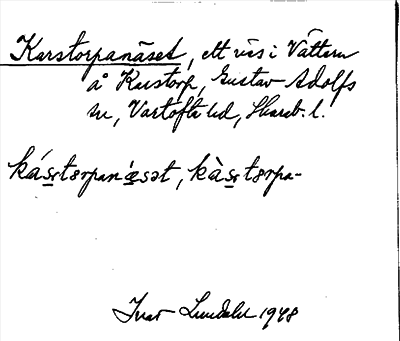 Karstorpanäset, ett näs i Vättern
å Karstorp, Gustav Adolfs
sn, Vartofta hd, Skarab. l.
kástorpanǽsət, kàstorpa-
Ivar Lundahl 1948